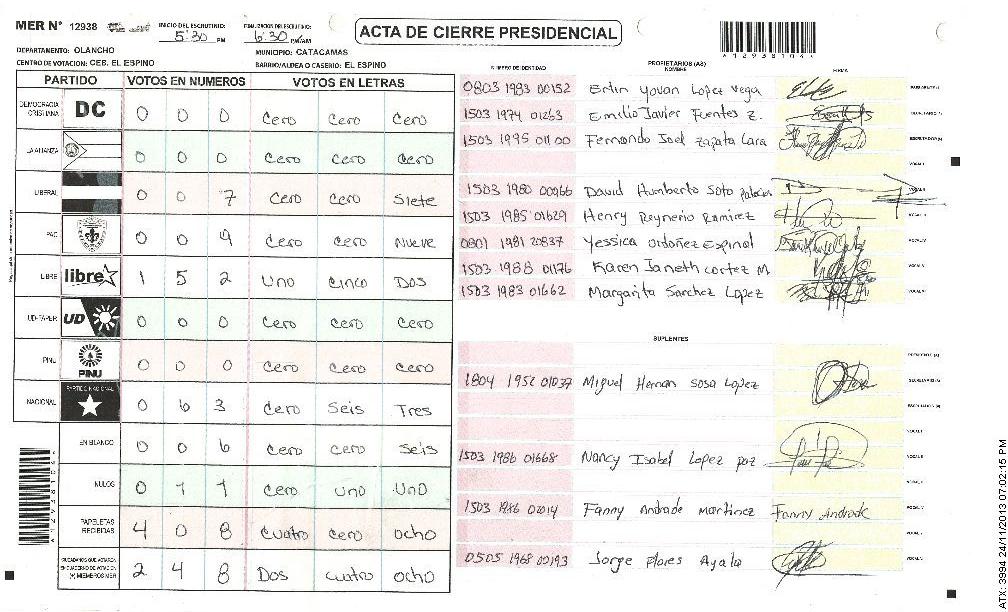 MER N° 12938
INICIO DEL ESCRUTINIO: 5:30 PM
6:30 PM/AM
ACTA DE CIERRE PRESIDENCIAL
*12938104*
DEPARTAMENTO: OLANCHO
MUNICIPIO: CATACAMAS
CENTRO DE VOTACION: CEB. EL ESPINO
BARRIO/ALDEA O CASERIO: EL ESPINO
PARTIDO VOTOS EN NUMEROS VOTOS EN LETRAS
DEMOCRACIA CRISTIANA DC 0 0 0 Cero Cero Cero
LA ALIANZA 0 0 0 Cero Cero Cero
LIBERAL 0 0 7 Cero Cero Siete
PAC 0 0 9 Cero Cero Nueve
LIBRE libre 1 5 2 Uno Cinco Dos
UD-FAPER UD 0 0 0 Cero Cero Cero
PINU PINU 0 0 0 Cero Cero Cero
NACIONAL PARTIDO NACIONAL 0 6 3 Cero Seis Tres
EN BLANCO 0 0 6 Cero Cero Seis
NULOS 0 1 1 Cero Uno Uno
PAPELETAS RECIBIDAS 4 0 8 Cuatro Cero Ocho
2 4 8 Dos Cuatro Ocho
NUMERO DE IDENTIDAD PROPIETARIOS (AS) NOMBRE FIRMA
0803 1983 00152 Erlin Yovan Lopez Vega
1503 1974 01263 Emilio Javier Fuentes Z.
1503 1995 01100 Fernando Joel Zapata Lara
1503 1980 00966 David Humberto Soto Palacios
1503 1985 01629 Henry Reynerio Ramirez
0801 1981 20837 Yessica Ordoñez Espinal
1503 1988 01176 Karen Janeth Cortez M.
1503 1983 01662 Margarita Sanchez Lopez
SUPLENTES
1804 1952 01037 Miguel Hernan Sosa Lopez
1503 1986 01668 Nancy Isabel Lopez Paz
1503 1986 02014 Fanny Andrade Martinez Fanny Andrade
0505 1968 00193 Jorge Flores Ayala
ATX: 3994 24/11/2013 07:02:15 PM